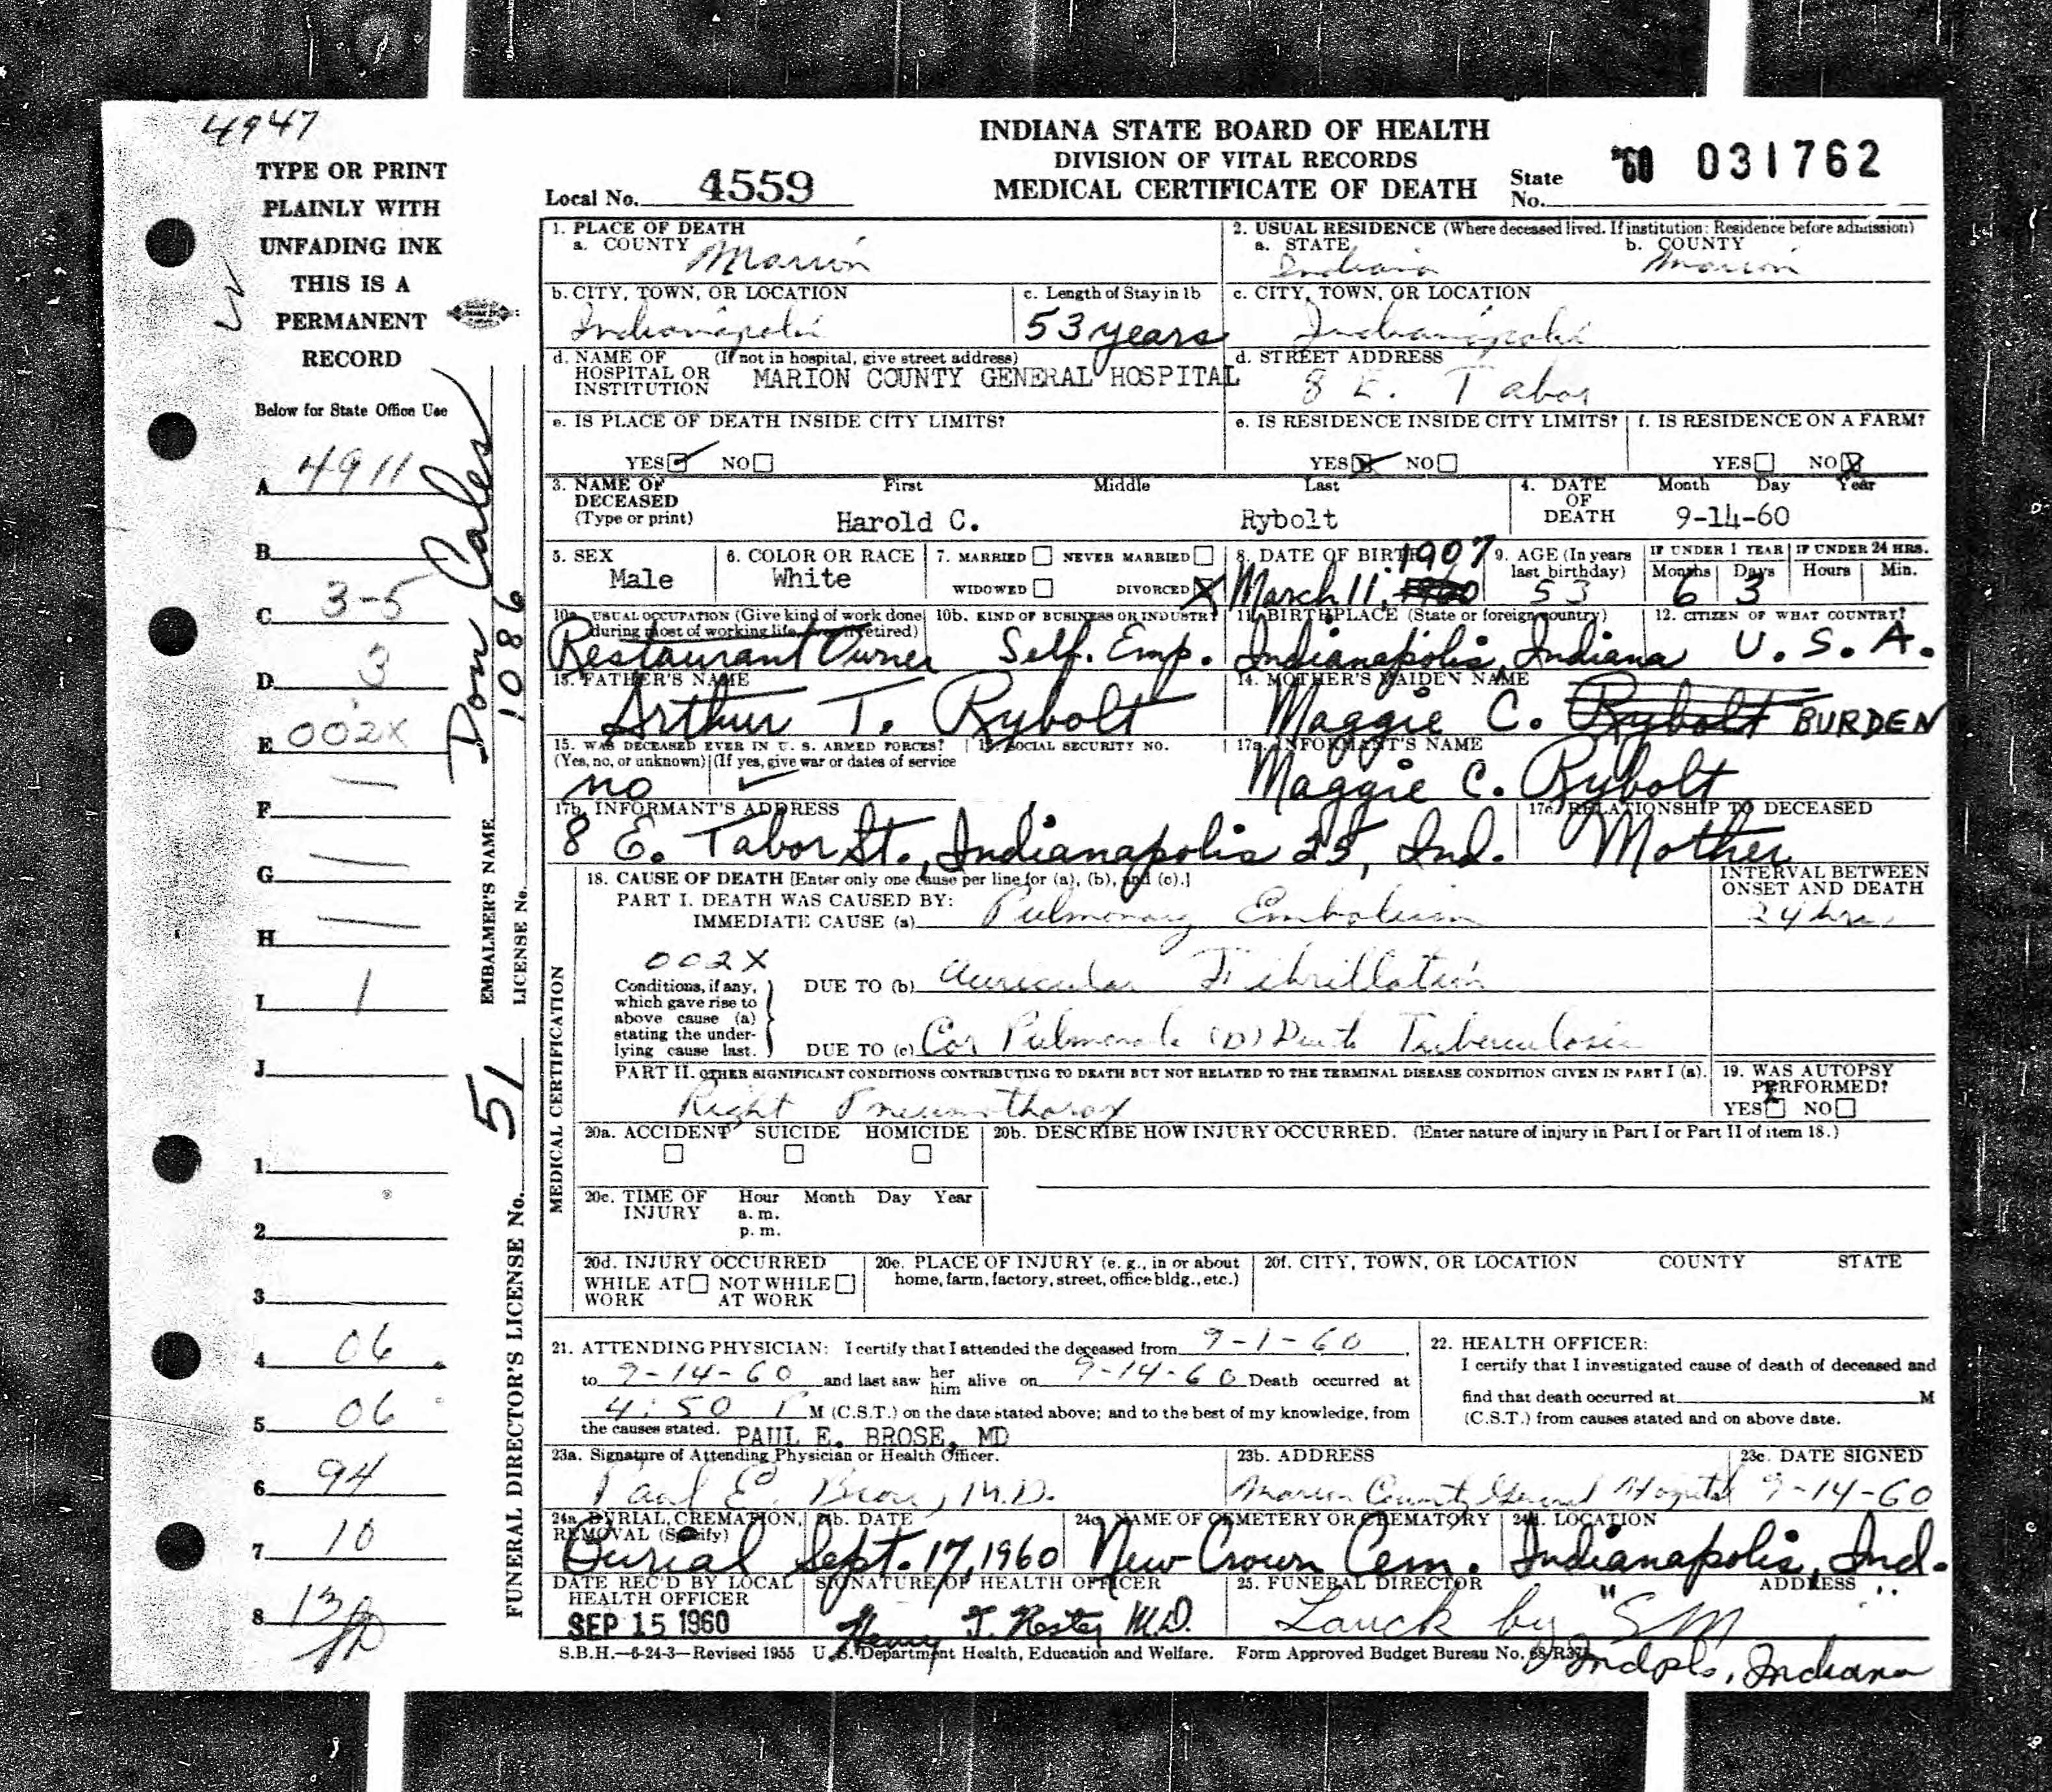 4947
INDIANA STATE BOARD OF HEALTH
DIVISION OF VITAL RECORDS
MEDICAL CERTIFICATE OF DEATH
Local No. 4559
State No. '60 031762
TYPE OR PRINT
PLAINLY WITH
UNFADING INK
THIS IS A
PERMANENT
RECORD
Below for State Office Use
A 4911
B
C 3-5
D 3
E 002X
F —
G —
H —
I 1
J
1
2
3
4 06
5 06
6 94
7 10
8 13
EMBALMER'S NAME Don Cales
LICENSE No. 1086
FUNERAL DIRECTOR'S LICENSE No. 51
1. PLACE OF DEATH
a. COUNTY Marion
2. USUAL RESIDENCE (Where deceased lived. If institution: Residence before admission)
a. STATE Indiana b. COUNTY Marion
b. CITY, TOWN, OR LOCATION Indianapolis
c. Length of Stay in 1b 53 years
c. CITY, TOWN, OR LOCATION Indianapolis
d. NAME OF HOSPITAL OR INSTITUTION (If not in hospital, give street address) MARION COUNTY GENERAL HOSPITAL
d. STREET ADDRESS 8 E. Tabor
e. IS PLACE OF DEATH INSIDE CITY LIMITS?
YES ✓ NO
e. IS RESIDENCE INSIDE CITY LIMITS?
YES X NO
f. IS RESIDENCE ON A FARM?
YES NO X
3. NAME OF DECEASED (Type or print) First Middle Last
Harold C. Rybolt
4. DATE OF DEATH Month Day Year
9-14-60
5. SEX Male
6. COLOR OR RACE White
7. MARRIED NEVER MARRIED
WIDOWED DIVORCED X
8. DATE OF BIRTH March 11, 1907
9. AGE (In years last birthday) 53
IF UNDER 1 YEAR Months 6 Days 3
IF UNDER 24 HRS. Hours Min.
10a. USUAL OCCUPATION (Give kind of work done during most of working life, even if retired) Restaurant Owner
10b. KIND OF BUSINESS OR INDUSTRY Self. Emp.
11. BIRTHPLACE (State or foreign country) Indianapolis, Indiana
12. CITIZEN OF WHAT COUNTRY? U.S.A.
13. FATHER'S NAME Arthur T. Rybolt
14. MOTHER'S MAIDEN NAME Maggie C. Rybolt BURDEN
15. WAS DECEASED EVER IN U. S. ARMED FORCES?
(Yes, no, or unknown) (If yes, give war or dates of service
no ✓
16. SOCIAL SECURITY NO.
17a. INFORMANT'S NAME Maggie C. Rybolt
17b. INFORMANT'S ADDRESS 8 E. Tabor St., Indianapolis 25, Ind.
17c. RELATIONSHIP TO DECEASED Mother
MEDICAL CERTIFICATION
18. CAUSE OF DEATH [Enter only one cause per line for (a), (b), and (c).]
INTERVAL BETWEEN ONSET AND DEATH
PART I. DEATH WAS CAUSED BY:
IMMEDIATE CAUSE (a) Pulmonary Embolism 24 hrs.
002X
Conditions, if any, which gave rise to above cause (a) stating the underlying cause last.
DUE TO (b) Auricular Fibrillation
DUE TO (c) Cor Pulmonale (D) Due to Tuberculosis
PART II. OTHER SIGNIFICANT CONDITIONS CONTRIBUTING TO DEATH BUT NOT RELATED TO THE TERMINAL DISEASE CONDITION GIVEN IN PART I (a).
Right Pneumothorax
19. WAS AUTOPSY PERFORMED?
YES NO
20a. ACCIDENT SUICIDE HOMICIDE
20b. DESCRIBE HOW INJURY OCCURRED. (Enter nature of injury in Part I or Part II of item 18.)
20c. TIME OF INJURY Hour Month Day Year
a. m.
p. m.
20d. INJURY OCCURRED
WHILE AT WORK NOT WHILE AT WORK
20e. PLACE OF INJURY (e. g., in or about home, farm, factory, street, office bldg., etc.)
20f. CITY, TOWN, OR LOCATION COUNTY STATE
21. ATTENDING PHYSICIAN: I certify that I attended the deceased from 9-1-60,
to 9-14-60 and last saw her him alive on 9-14-60 Death occurred at
4:50 P M (C.S.T.) on the date stated above; and to the best of my knowledge, from
the causes stated. PAUL E. BROSE, MD
22. HEALTH OFFICER:
I certify that I investigated cause of death of deceased and
find that death occurred at M
(C.S.T.) from causes stated and on above date.
23a. Signature of Attending Physician or Health Officer.
Paul E. Brose, M.D.
23b. ADDRESS Marion County General Hospital
23c. DATE SIGNED 9-14-60
24a. BURIAL, CREMATION, REMOVAL (Specify) Burial
24b. DATE Sept. 17, 1960
24c. NAME OF CEMETERY OR CREMATORY New Crown Cem.
24d. LOCATION Indianapolis, Ind.
DATE REC'D BY LOCAL HEALTH OFFICER SEP 15 1960
SIGNATURE OF HEALTH OFFICER Henry G. Nester M.D.
25. FUNERAL DIRECTOR ADDRESS
Lauck by SM
Indpls, Indiana
S.B.H.—6-24-3—Revised 1955 U. S. Department Health, Education and Welfare. Form Approved Budget Bureau No.